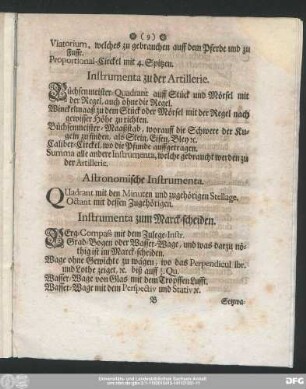 • (9) •
Viatorium, welches zu gebrauchen auff dem Pferde und zu
Fusse.
Proportional-Circkel mit 4. Spitzen.
Instrumenta zu der Artillerie.
Büchsenmeister-Quadrant auff Stück und Mörsel mit
der Regel, auch ohne die Regel.
Winckelmaaß zu dem Stück oder Mörsel mit der Regel nach
gewisser Höhe zu richten.
Büchsenmeister-Maaßstab, worauff die Schwere der Ku-
geln zu finden, als Stein, Eisen, Bley ꝛc.
Caliber-Circkel, wo die Pfunde auffgetragen.
Summa alle andere Instrumenta, welche gebraucht werden zu
der Artillerie.
Astronomische Instrumenta.
Quadrant mit den Minuten und zugehörigen Stellage.
Octant mit dessen Zugehörigen.
Instrumenta zum Marck-scheiden.
Berg-Compaß mit dem Zulege-Instr.
Grad-Bogen oder Wasser-Wage, und was darzu nö-
thig ist im Marck-scheiden.
Wage ohne Gewichte zu wägen, wo das Perpendicul Ihr.
und Lothe zeiget, ꝛc. biß auff ½ Qu.
Wasser-Wage von Glas mit dem Tropffen Lufft.
Wasser-Wage mit dem Perspectiv und Stativ ꝛc.
B
Setzwa-